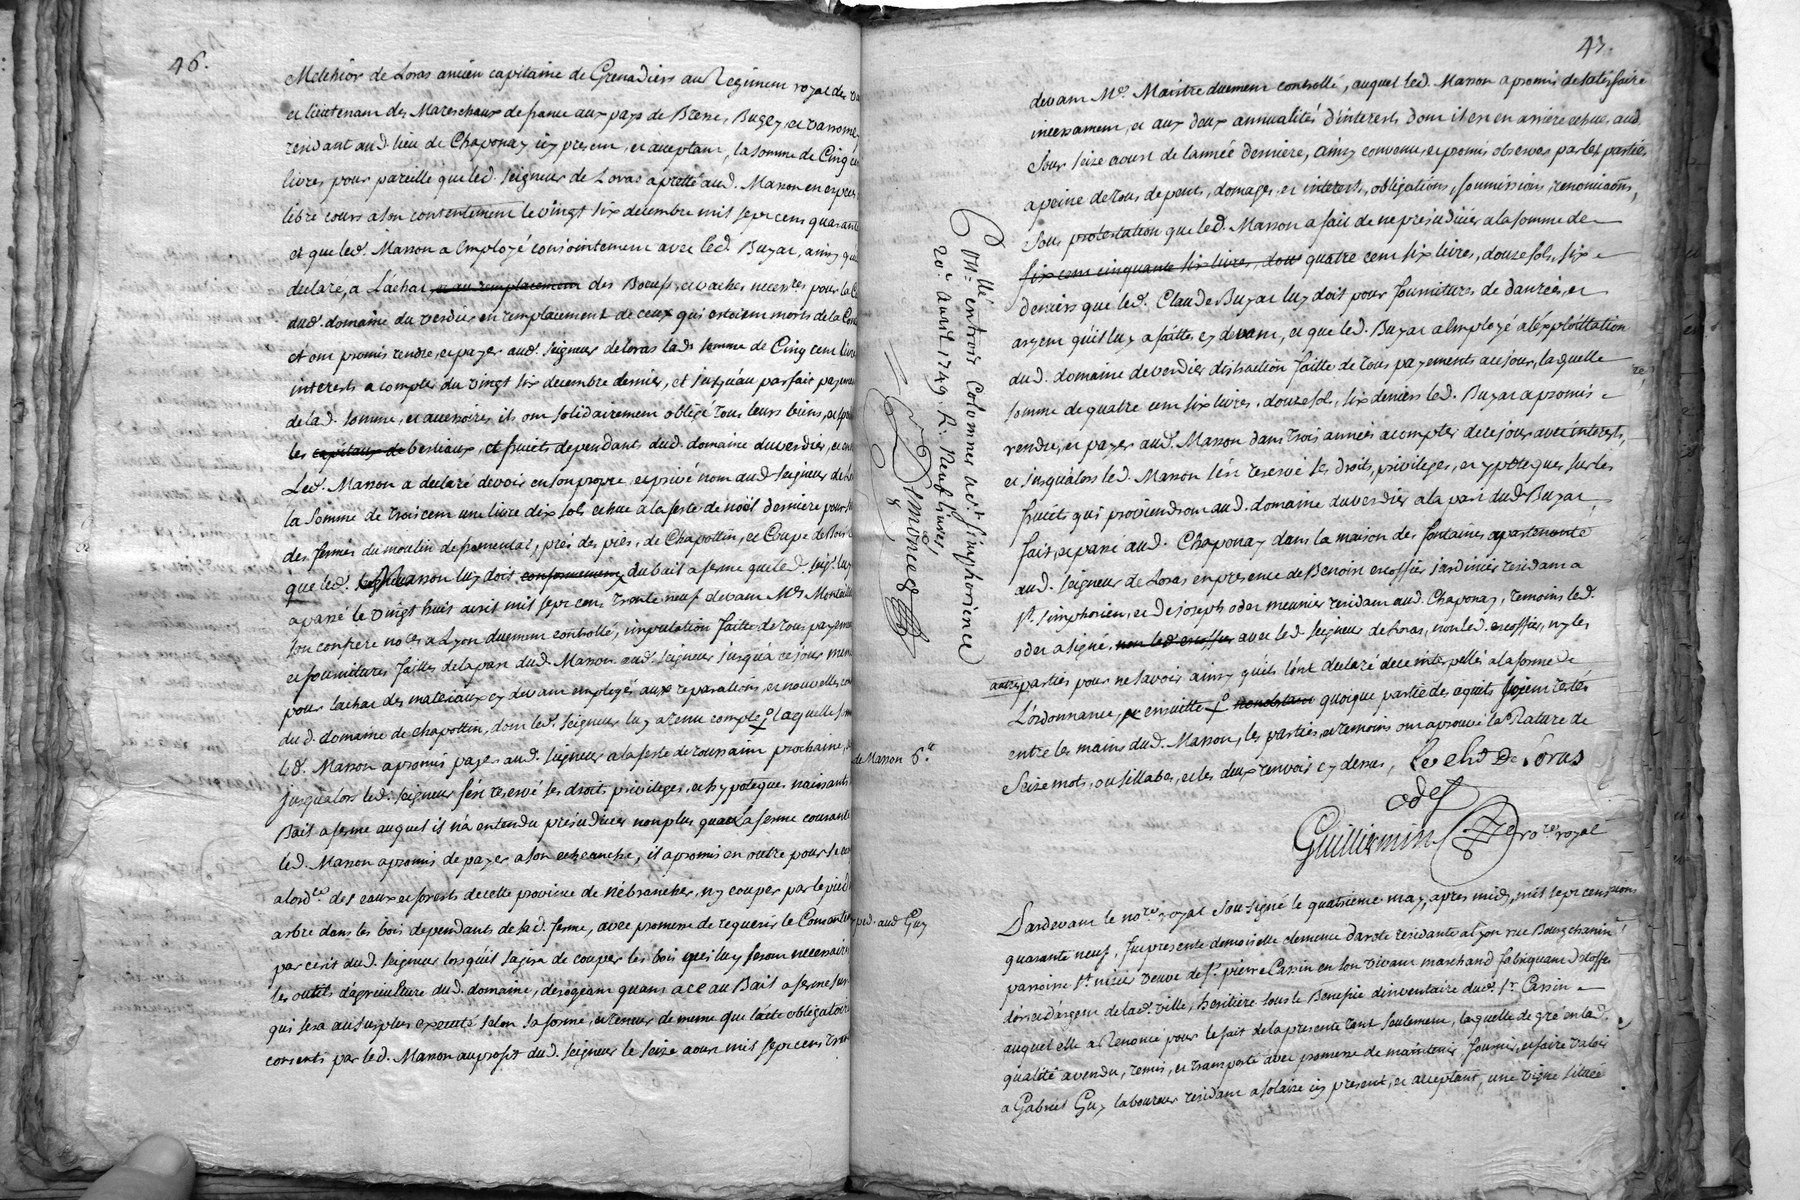 46.
Melchior de Loras ancien capitaine de Grenadiers au Regiment royal des
et lieutenant des Mareschaux de france aux pays de Bresse, Bugey, et valromey
residant aud. lieu de Chaponay icy present, et acceptant, la somme de Cinq cen
livres pour pareille que led. seigneur de Loras a pretté aud. Masson en especes
libre cours a son contentement le vingt six decembre mil sept cens quarante
et que led. Masson a Employé conjointement avec led. Buyat, ainsy qu'il
declare, a L'achat et au remplacement des Boeufs, et vaches necesres pour la
dud. domaine du verdier en remplacement de ceux qui estoient morts de la
et ont promis rendre, et payer aud. seigneur de loras lad. somme de Cinq cent livres
interests a compter du vingt six decembre dernier, et jusqu'au parfait payement
de lad. somme, et accessoires, ils ont solidairement obligé tous leurs biens, et
les capitaux de bestiaux, et fruits dependants dud. domaine du verdier, et
Led. Masson a declaré devoir en son propre, et privé nom aud. seigneur de
la somme de trois cent une livre dix sols echue a la feste de noël derniere pour
des fermes du moulin de fromental, prés des piès, de Chapottin, et Coupe de Bois
que led. Masson luy doit conformement du bail a ferme que led. seigr. luy
a passé le vingt huit avril mil sept cent trente neuf devant Me
son confrere nores a Lyon duement controllé, imputation faitte de tous payements
et fournitures faittes de la part dud. Masson aud. seigneur jusqu'a ce jour
pour l'achat des materiaux cy devant employés aux reparations, et nouvelles
du d. domaine de chapottin, dont led. seigneur luy a tenu compte, laquelle somme
led. Masson a promis payer aud. seigneur a la feste de toussaint prochaine,
jusqu'alors led. seigneur s'est reservé ses droits, privileges, et hypoteques naissants
Bail a ferme auquel il n'a entendu préjudicier non plus qu'a la ferme courante
led. Masson a promis de payer a son echeance, il a promis en outre pour se
a lordce des eaux et forests de cette province de n'ébrancher, ny couper par le pied
arbre dans les bois dependants de sad. ferme, avec promesse de requerir le Consentement
par ecrit dud. seigneur lors qu'il s'agira de couper les bois qui luy seront necessaires
les outils d'agriculture dud. domaine, derogeant quant a ce au Bail a ferme sus
qui sera au surplus executé selon sa forme, et teneur de meme que l'acte obligatoire
consenti par led. Masson au profit dud. seigneur le seize aoust mil sept cens
43.
devant Me. Maistre duement controllé, auquel led. Masson a promis de satisfaire
incessament, et aux deux annuallités d'interests dont il est en arriere echues aud.
jour seize aoust de l'année derniere, ainsy convenu, et promis observer par les parties,
a peine de tous depents, domages, et interests, obligations, soumissions, renonciaôns,
sous protestation que led. Masson a fait de ne prejudicier a la somme de
six cent cinquante six livres, douze quatre cent six livres, douze sols, six
deniers que led. Claude Buyat luy doit pour fournitures de danrées, et
argent qu'il luy a faittes cy devant, et que led. Buyat a Employé a l'exploittation
dud. domaine de verdier distraction faitte de tous payements a ce jour, laquelle
somme de quatre cent six livres, douze sol, six deniers led. Buyat a promis
rendre, et payer aud. Masson dans trois années a compter de ce jour avec interests,
et jusqu'alors led. Masson s'est reservé ses droits, privileges, et ypoteques sur les
fruits qui proviendront aud. domaine du verdier a la part dud. Buyat,
fait, et passé aud. Chaponay dans la maison de fontaines apartenante
aud. seigneur de Loras en presence de Benoit escoffier jardinier residant a
st. simphorien, et de joseph odet meunier residant aud. Chaponay, temoins led.
odet a signé, non led. escoffier avec led. seigneur de Loras, non led. escoffier, ny les
autres parties pour ne savoir ainsy qu'ils l'ont declaré de ce interpellés a la forme de
L'ordonnance, et ensuitte nonobstant quoique partie des aquits soient restés
entre les mains dud. Masson, les parties, et temoins ont aprouvé la Rature de
seize mots, ou sillabes, et les deux renvois cy dessus,
Le chr De Loras
odet
Guillermin nore royal
Cllé en trois Colomnes a st simphorien ce
20e avril 1749. R. Neuf livres,
de Masson 6tt
Pardevant le nore royal sousigné le quatrieme may, apres midy, mil sept cens
quarante neuf, fut presente demoiselle clemence darote residante a Lyon rue Bourgchanin
parroisse st. nizier veuve de sr. pierre Cassin en son vivant marchand fabriquant d'étoffes
d'or, et d'argent de lad. ville, heritiere sous le Benefice d'inventaire dud. sr. Cassin
auquel elle a Renoncé pour le fait de la presente tant seulement, laquelle de gré en lad.
qualité a vendu, remis, et transporté avec promesse de maintenir, fournir, et faire valoir
a Gabriel Guy laboureur residant a solaire icy present, et acceptant, une vigne située
ped. aud Guy